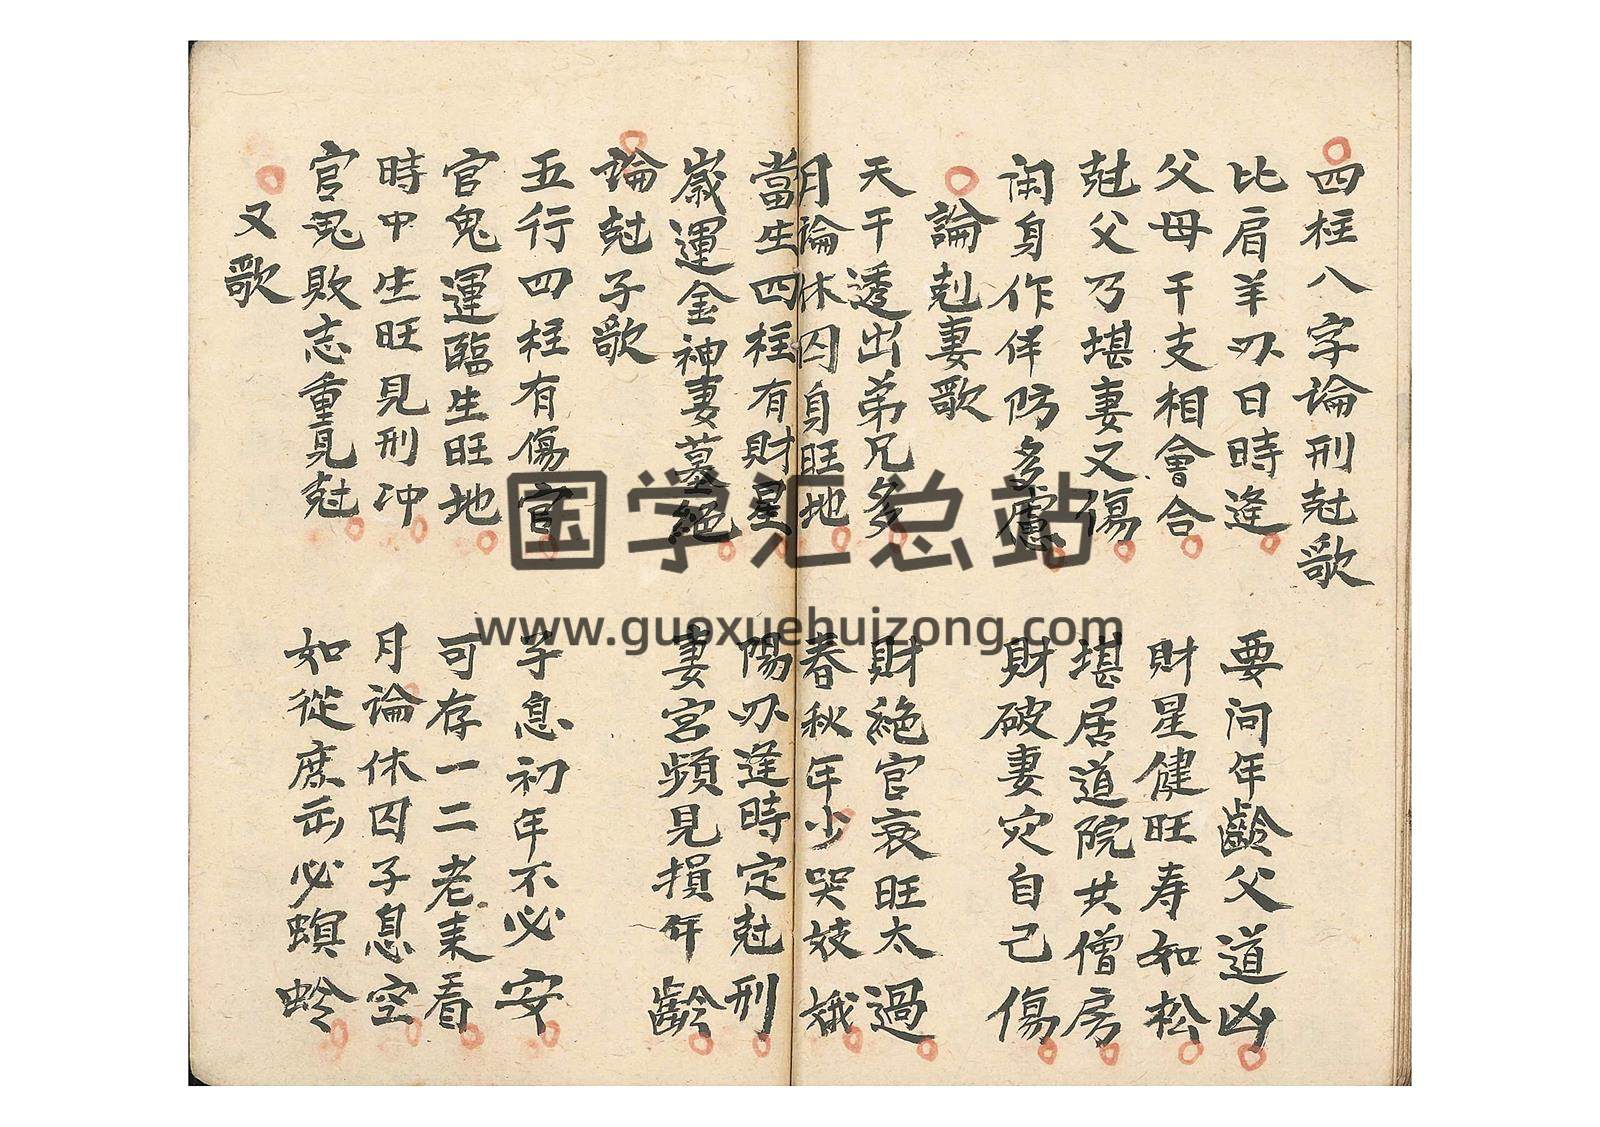 四柱八字論刑尅歌
比肩羊刅日時逢 要问年齡父道凶
父母干支相會合 財星健旺寿如松
尅父乃堪妻又傷 堪居道院共僧房
闲身作伴防多慮 財破妻灾自己傷
論剋妻歌
天干透出弟兄多 財絶官衰旺太過
月論休囚身旺地 春秋年少哭妓娥
當生四柱有財星 陽刅逢時定尅刑
歲運金神妻墓絕 妻宮頻見損年齡
論尅子歌
五行四柱有傷官 子息初年不必安
官鬼運臨生旺地 可存一二老来看
時中生旺見刑冲 月論休囚子息空
官鬼敗志重見尅 如從庶出必螟蛉
又歌
国学汇总站
www.guoxuehuizong.com